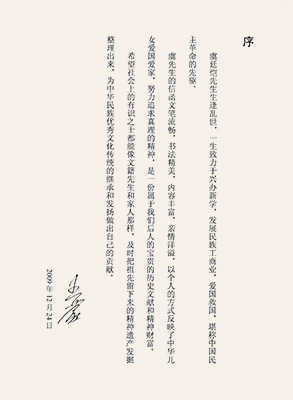 序
虞廷恺先生生逢乱世，一生致力于兴办新学，发展民族工商业，爱国救国，堪称中国民
主革命的先驱。
虞先生的信函文笔流畅，书法精美，内容丰富，亲情洋溢，以个人的方式反映了中华儿
女爱国爱家，努力追求真理的精神，是一份属于我们后人的宝贵的历史文献和精神财富。
希望社会上的有识之士都能像文籍先生和家人那样，及时把祖先留下来的精神遗产发掘
整理出来，为中华民族优秀文化传统的继承和发扬做出自己的贡献。
2009年12月24日